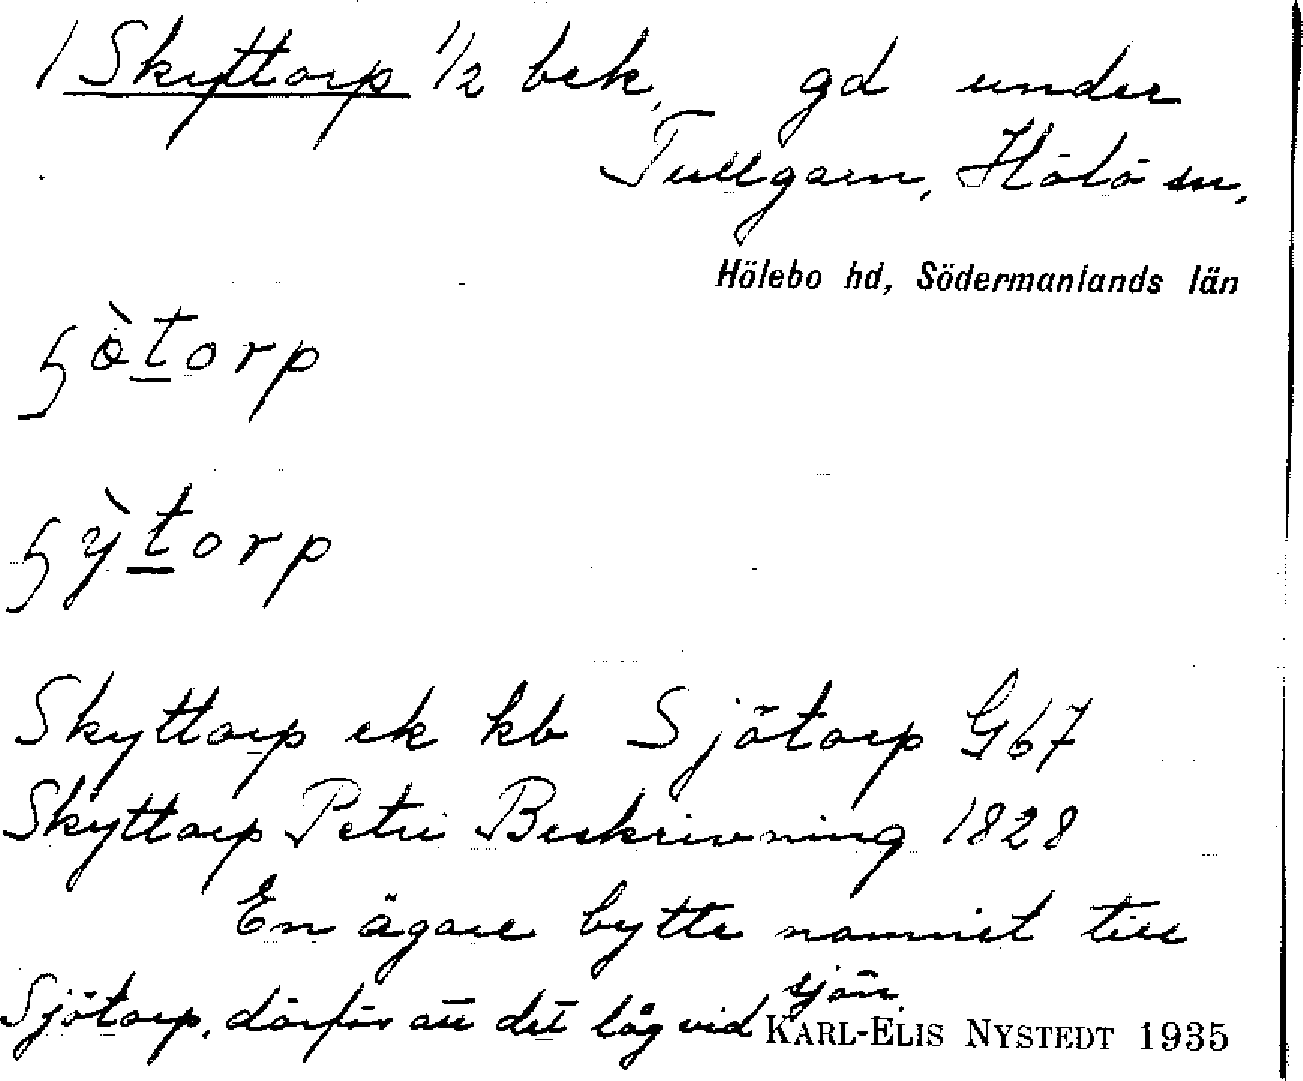 / Skyttorp 1/2 bek. gd under
Tullgarn, Hölö sn,
Hölebo hd, Södermanlands län
ꞩò̈torp
ꞩỳtorp
Skyttorp ek kb Sjötorp G67
Skyttorp Petri Beskrivning 1828
En ägare bytte namnet till
Sjötorp, därför att det låg vid sjön.
KARL-ELIS NYSTEDT 1935